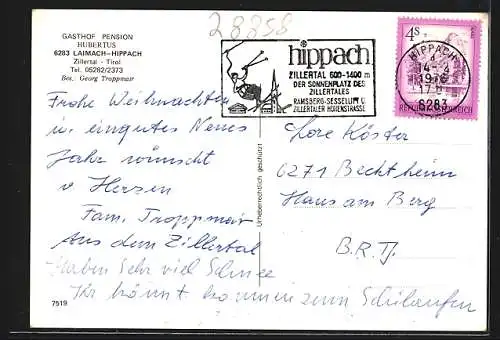 GASTHOF PENSION
HUBERTUS
6283 LAIMACH-HIPPACH
Zillertal - Tirol
Tel. 05282/2373
Bes. Georg Troppmair
28858
hippach
ZILLERTAL 600-1400 m
DER SONNENPLATZ DES
ZILLERTALES
RAMSBERG-SESSELLIFT U.
ZILLERTALER HÖHENSTRASSE
4S
REPUBLIK ÖSTERREICH
HIPPACH
1976
6283
Frohe Weihnachten
u. ein gutes Neues
Jahr wünscht
v Herzen
Fam. Troppmair
Aus dem Zillertal
Haben Sehr viel Schnee
Ihr könnt kommen zum Schilaufen
Urheberrechtlich geschützt
Lore Köster
6271 Bechtheim
Haus am Berg
B.R.D.
7519